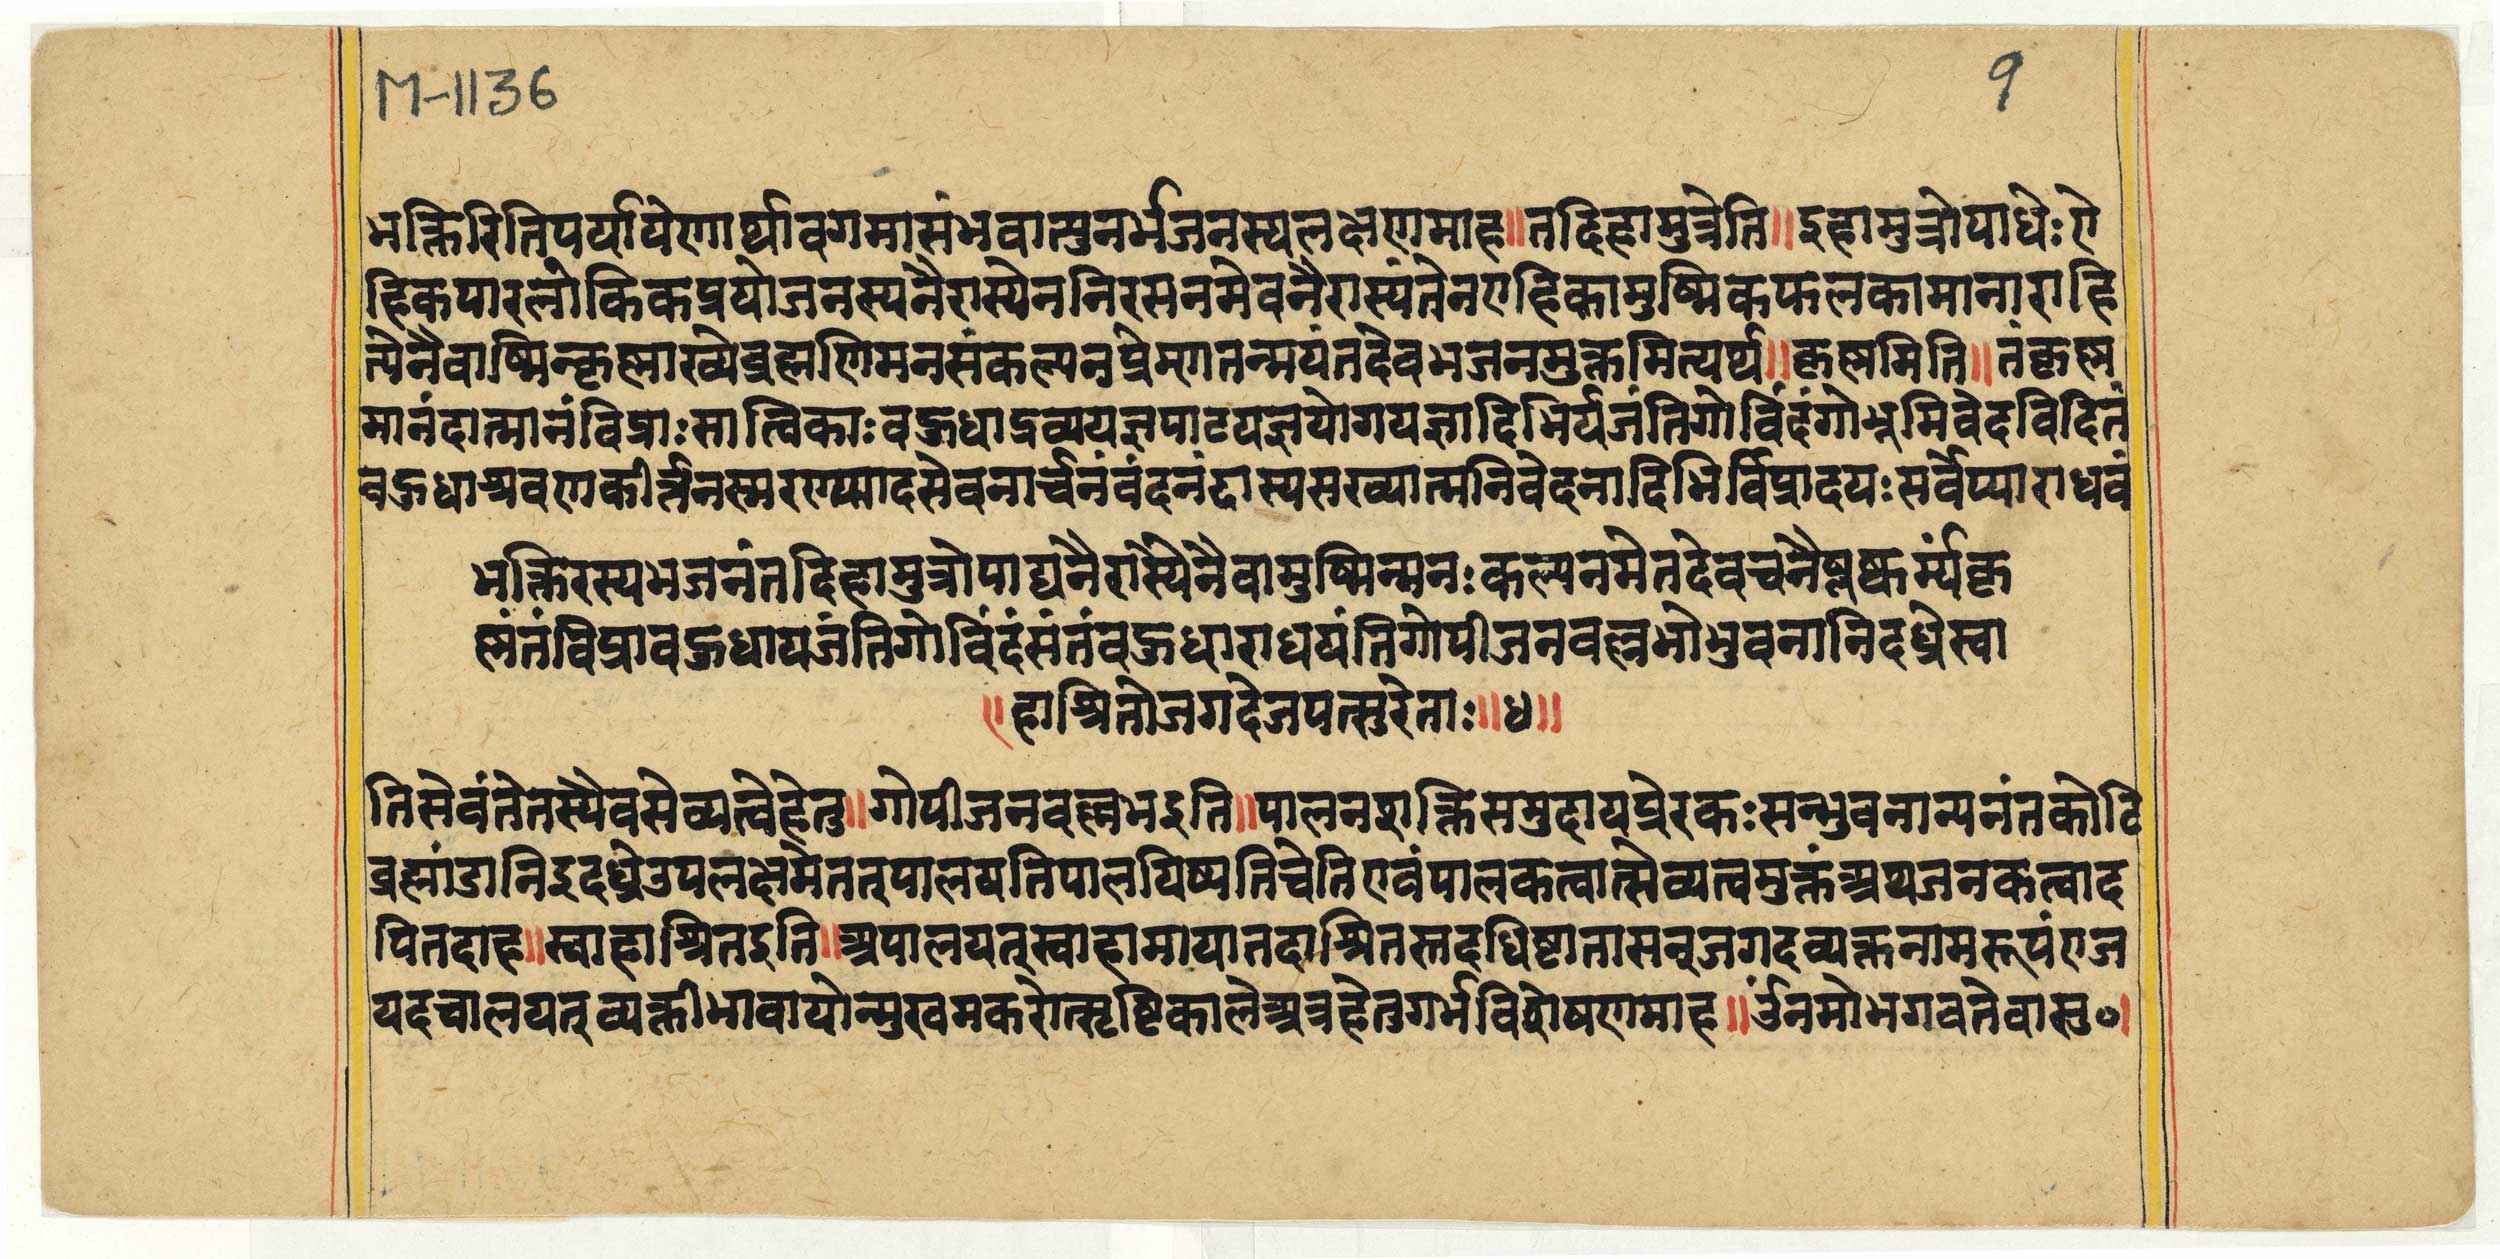 M-1136 9
भक्तिरितिपर्यायेणार्थावगमासंभवात्पुनर्भजनस्यलक्षणमाह॥तदिहामुत्रेति॥इहामुत्रोपाधेःऐ
हिकपारलौकिकप्रयोजनस्यनैरास्येननिरसनमेवनैरास्यंतेनएहिकामुष्मिकफलकामानाराहि
त्येनैवाष्मिन्कृष्णाख्येब्रह्मणिमनसंकल्पनप्रेमगतन्मयंतदेवभजनमुक्तमित्यर्थ॥कृष्णमिति॥तंकृष्ण
मानंदात्मानंविप्राःसात्विकाःबहुधाद्रव्ययज्ञपाठयज्ञयोगयज्ञादिभिर्यजंतिगोविंदंगोभूमिवेदविदितं
बहुधाश्रवणकीर्त्तनस्मरणपादसेवनार्चनंवंदनंदास्यसख्यात्मनिवेदनादिभिर्विप्रादयःसर्वेप्याराधवं
भक्तिरस्यभजनंतदिहामुत्रोपाद्यनैरास्येनैवामुष्मिन्मनःकल्पनमेतदेवचनैष्कर्म्यंकृ
ष्णंतंविप्राबहुधायजंतिगोविंदंसंतंबहुधाराधयंतिगोपीजनवल्लभोभुवनानिदध्रेस्वा
॥हाश्रितोजगदेजयत्सुरेताः॥४॥
तिसेवंतेतस्यैवसेव्यत्वेहेतु॥गोपीजनवल्लभइति॥पालनशक्तिसमुदायप्रेरकःसन्भुवनान्यनंतकोटि
ब्रह्मांडानिइदध्रेउपलक्षमेतत्पालयतिपालयिष्यतिचेतिएवंपालकत्वात्सेव्यत्वमुक्तंअथजनकत्वाद
पितदाह॥स्वाहाश्रितइति॥अपालयत्स्वाहामायातदाश्रितस्तदधिष्टातासन्जगदव्यक्तनामरूपंएज
यदचालयत्व्यक्तीभावायोन्मुखमकरोत्सृष्टिकालेअत्रहेतुगर्भविशेषणमाह॥र्उनमोभगवतेवासु०।